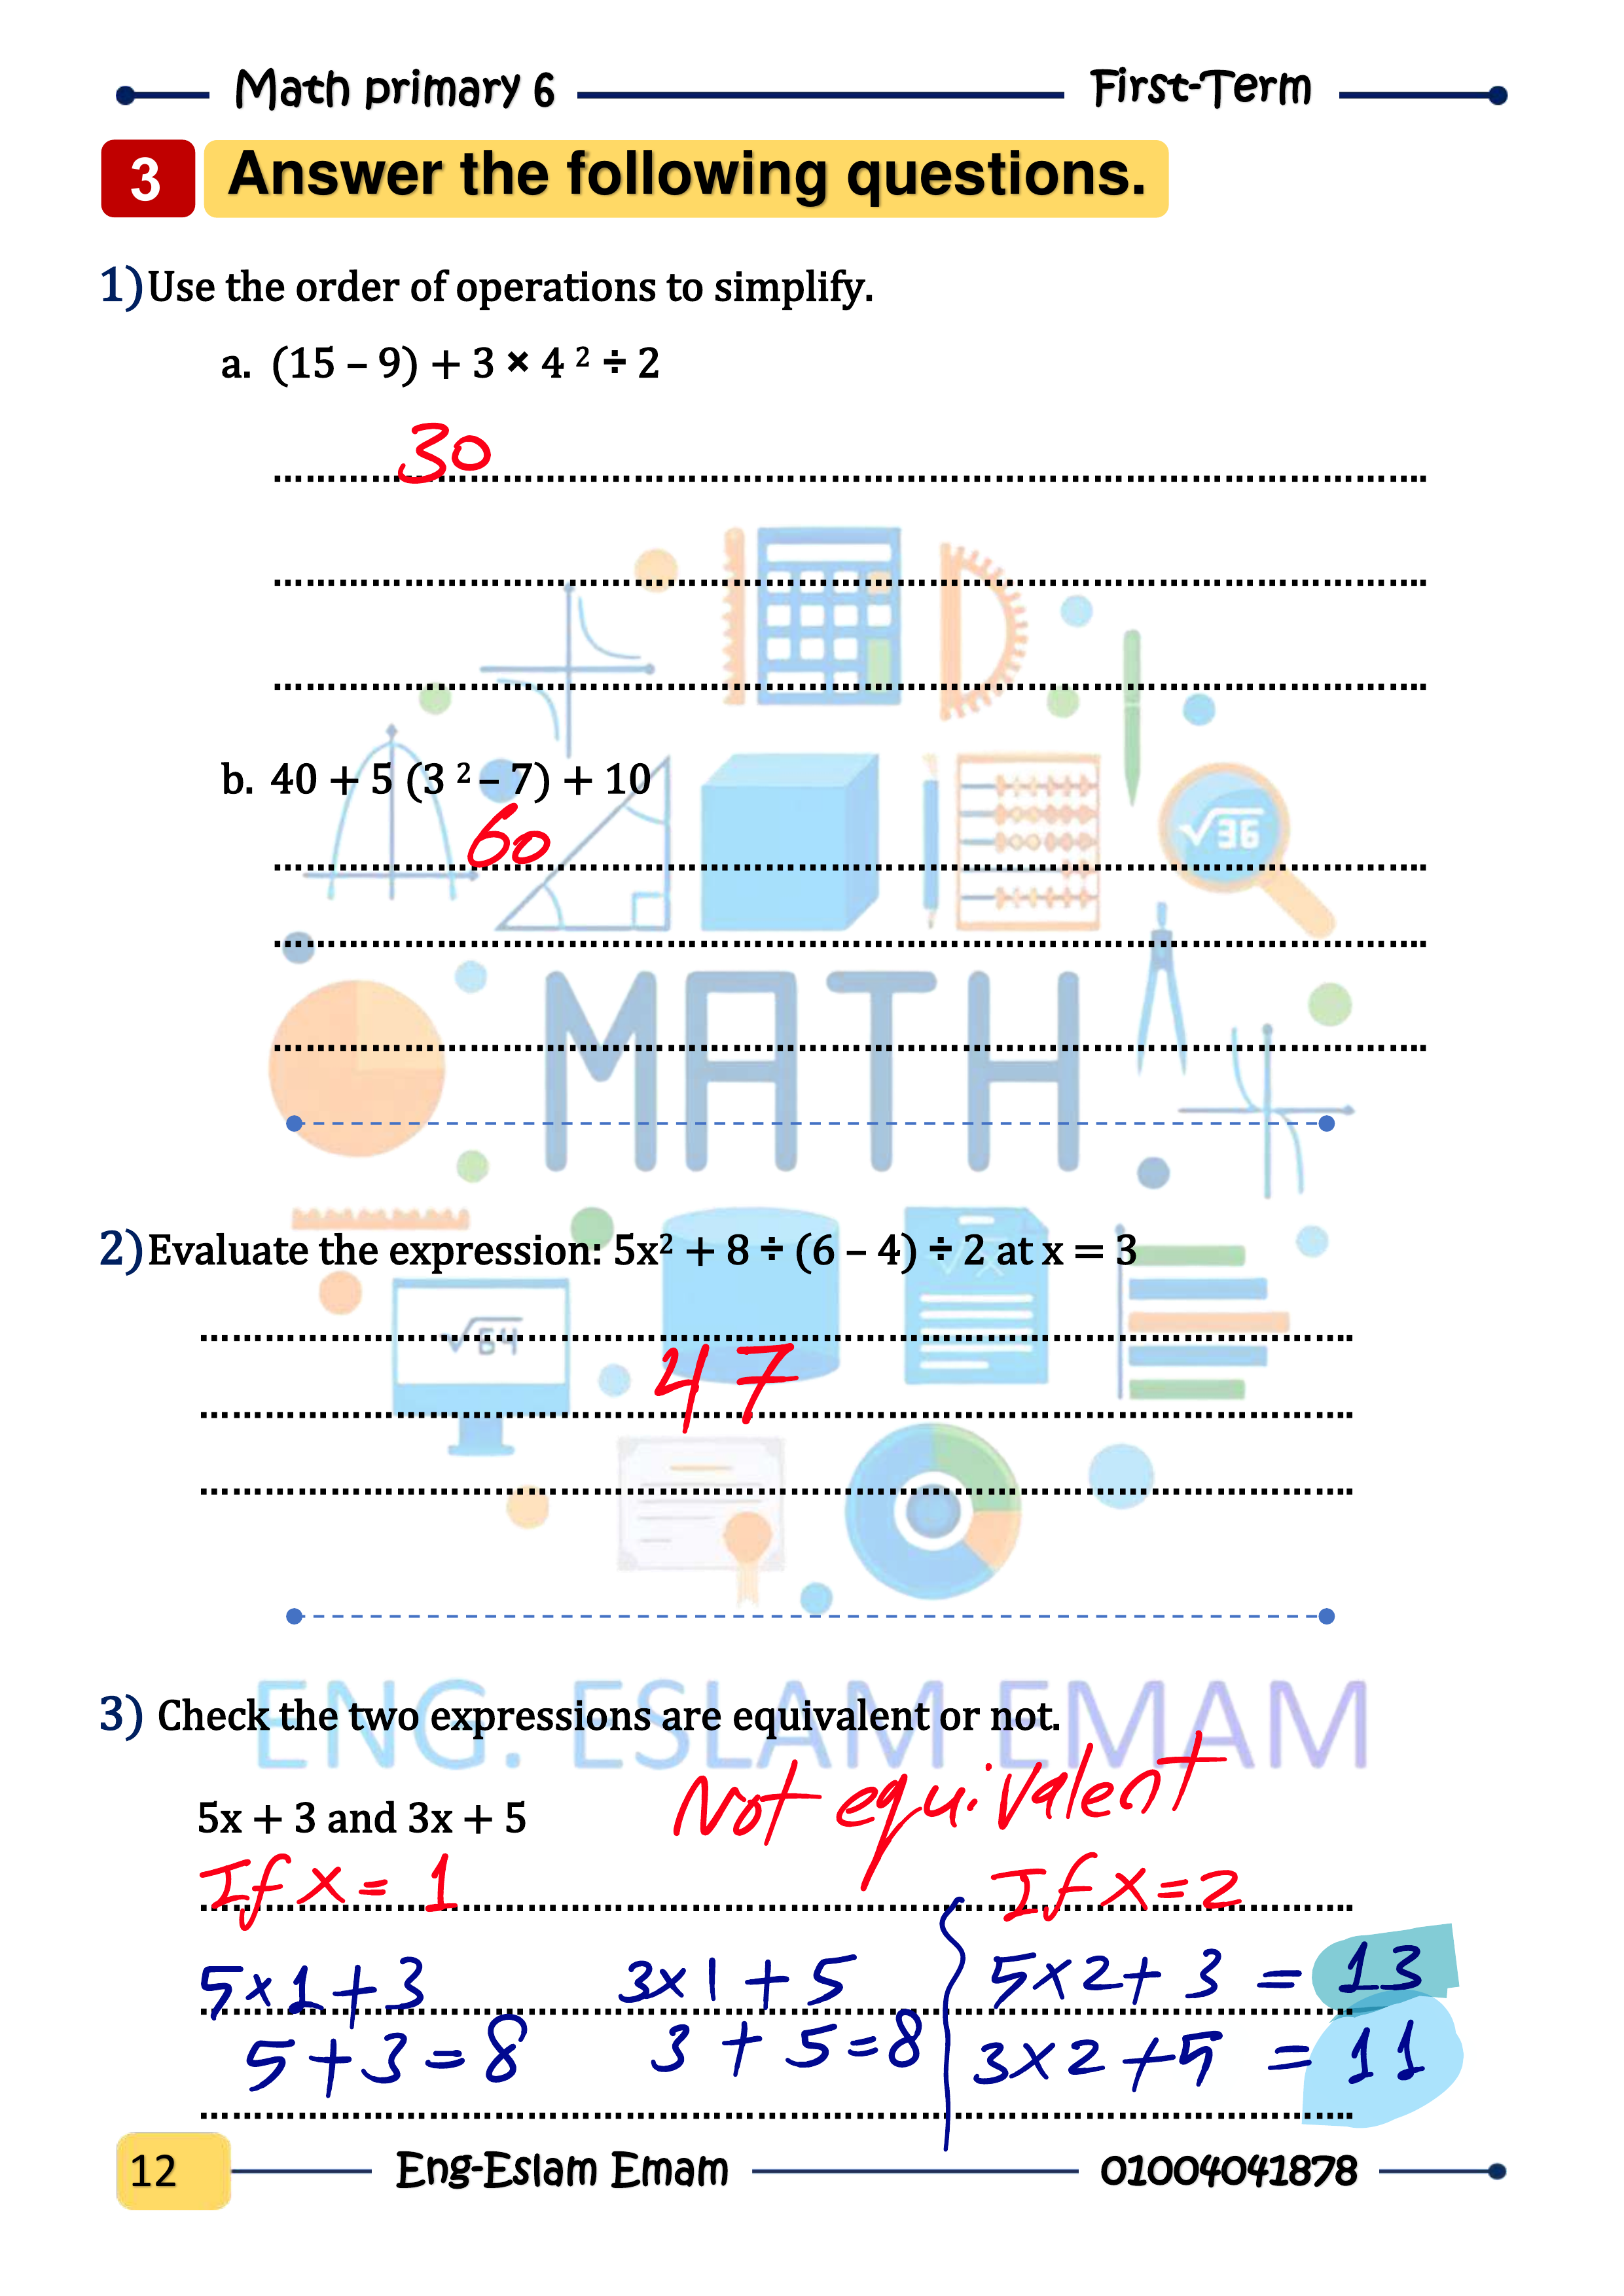 Math primary 6 First-Term
3 Answer the following questions.
1) Use the order of operations to simplify.
a. (15 – 9) + 3 × 4 ² ÷ 2
30
b. 40 + 5 (3 ² – 7) + 10
60
√36
MATH
2) Evaluate the expression: 5x² + 8 ÷ (6 – 4) ÷ 2 at x = 3
√64
47
ENG. ESLAM EMAM
3) Check the two expressions are equivalent or not.
Not equivalent
5x + 3 and 3x + 5
If x = 1 If x = 2
5×1+3 3×1+5 5×2+3 = 13
5+3=8 3+5=8 3×2+5 = 11
12 Eng-Eslam Emam 01004041878